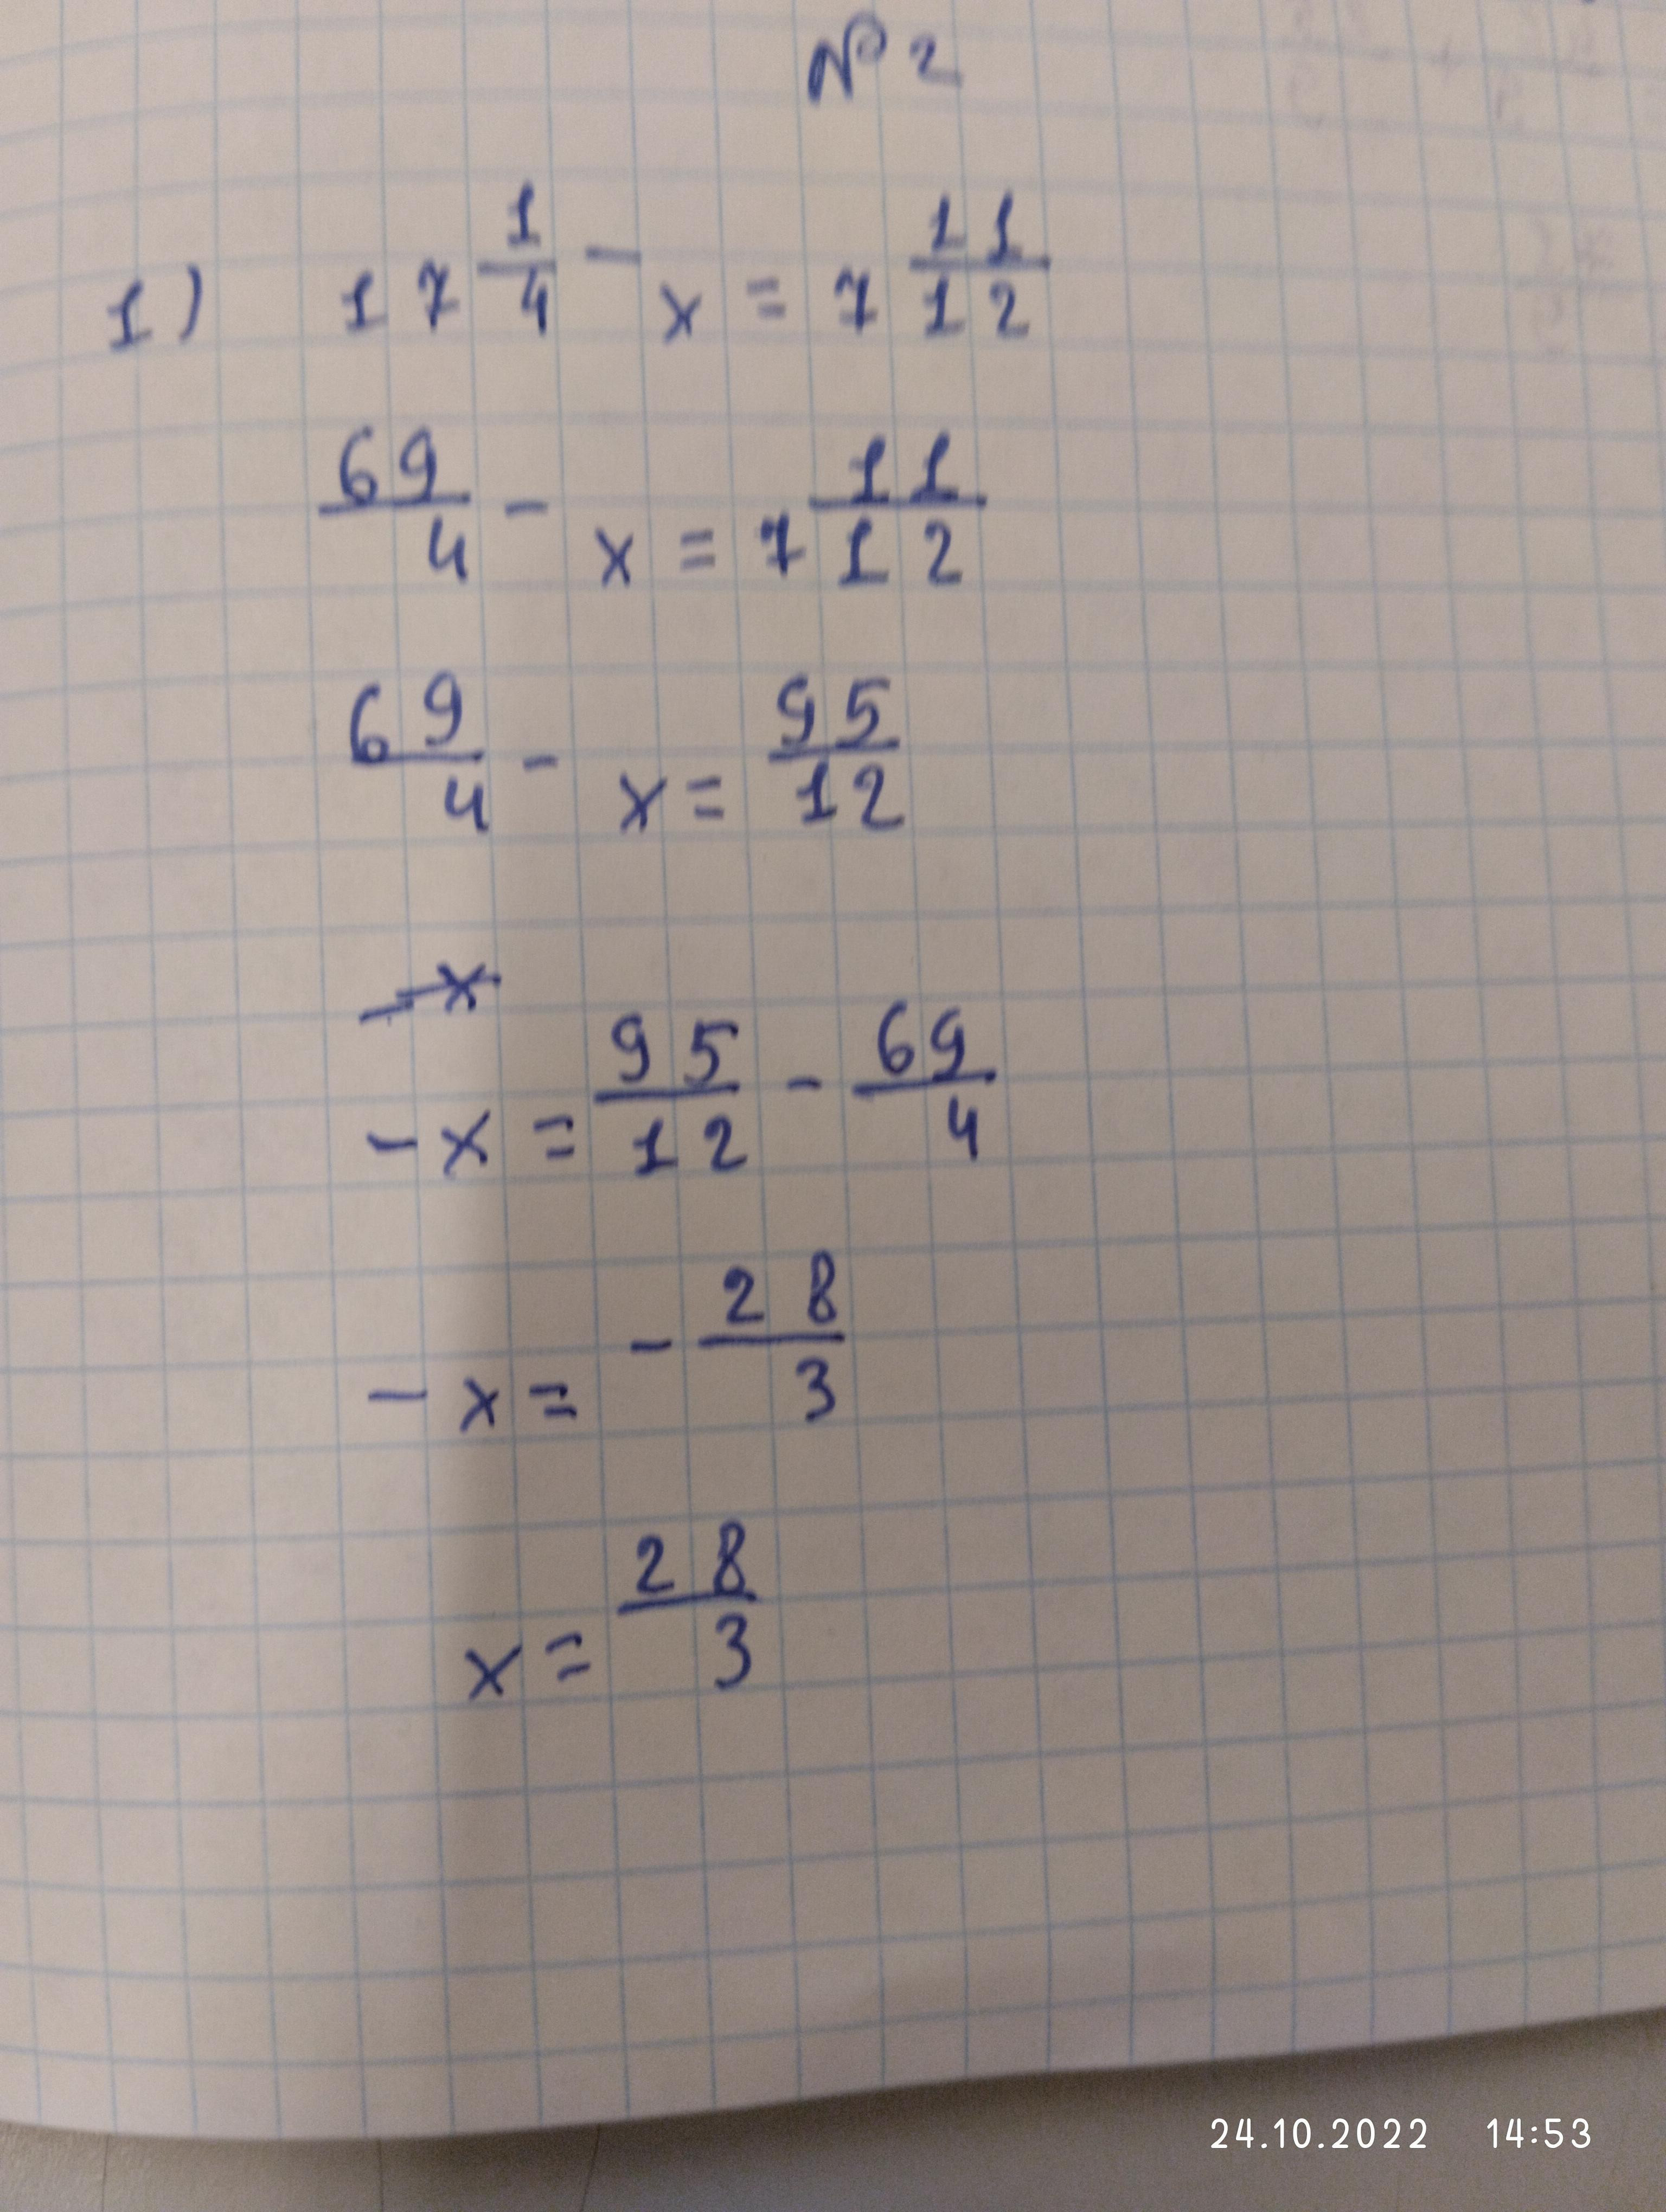 № 2
1) 17 1/4 - x = 7 11/12
69/4 - x = 7 11/12
69/4 - x = 95/12
-x
-x = 95/12 - 69/4
-x = - 28/3
x = 28/3
24.10.2022 14:53